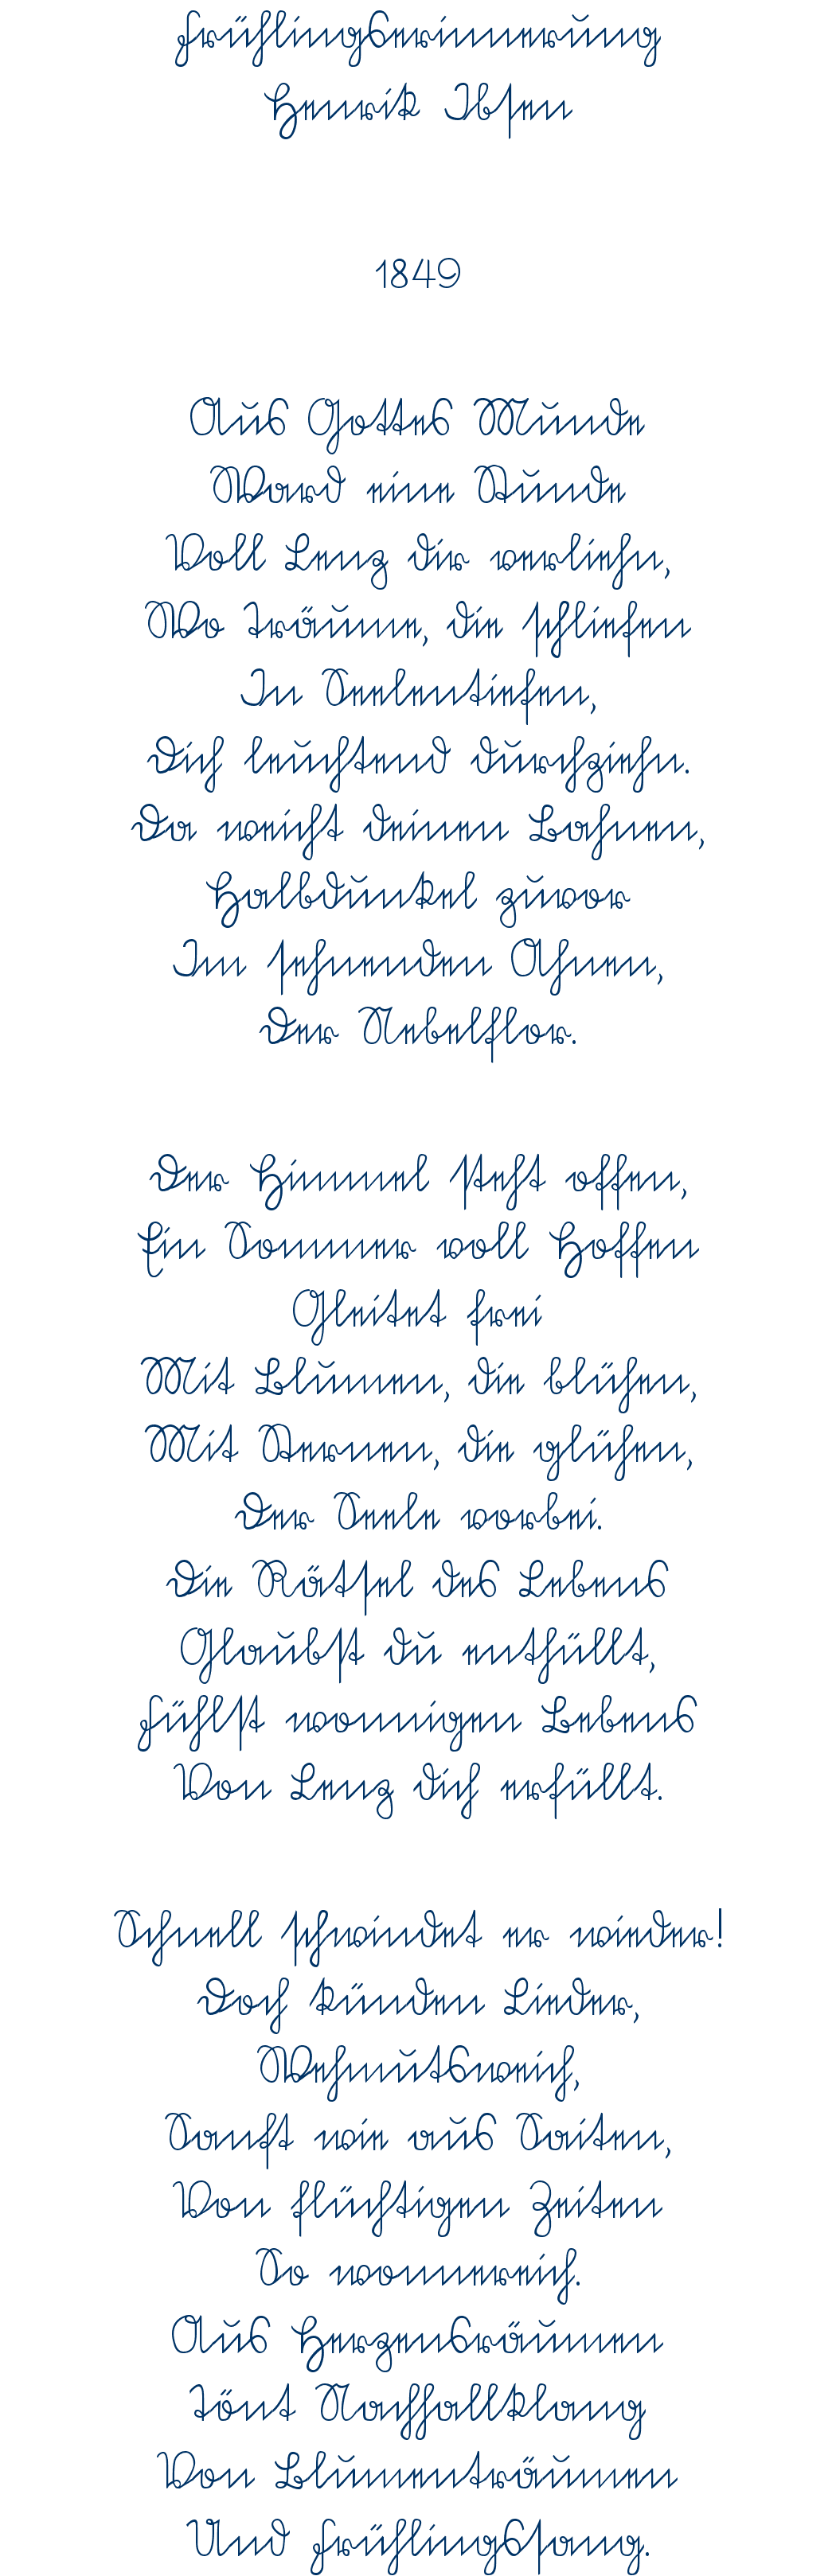 Frühlingserinnerung
Henrik Ibsen
1849
Aus Gottes Munde
Ward eine Stunde
Voll Lenz dir verliehn,
Wo Träume, die schliefen
In Seelentiefen,
Dich leuchtend durchziehn.
Da weicht deinen Bahnen,
Halbdunkel zuvor
Im sehnenden Ahnen,
Der Nebelflor.
Der Himmel steht offen,
Ein Sommer voll Hoffen
Gleitet frei
Mit Blumen, die blühen,
Mit Sternen, die glühen,
Der Seele vorbei.
Die Rätsel des Lebens
Glaubst du enthüllt,
Fühlst wonnigen Bebens
Von Lenz dich erfüllt.
Schnell schwindet er wieder!
Doch künden Lieder,
Wehmutsweich,
Sanft wie aus Saiten,
Von flüchtigen Zeiten
So wonnereich.
Aus Herzensräumen
Tönt Nachhallklang
Von Blumenträumen
Und Frühlingssang.